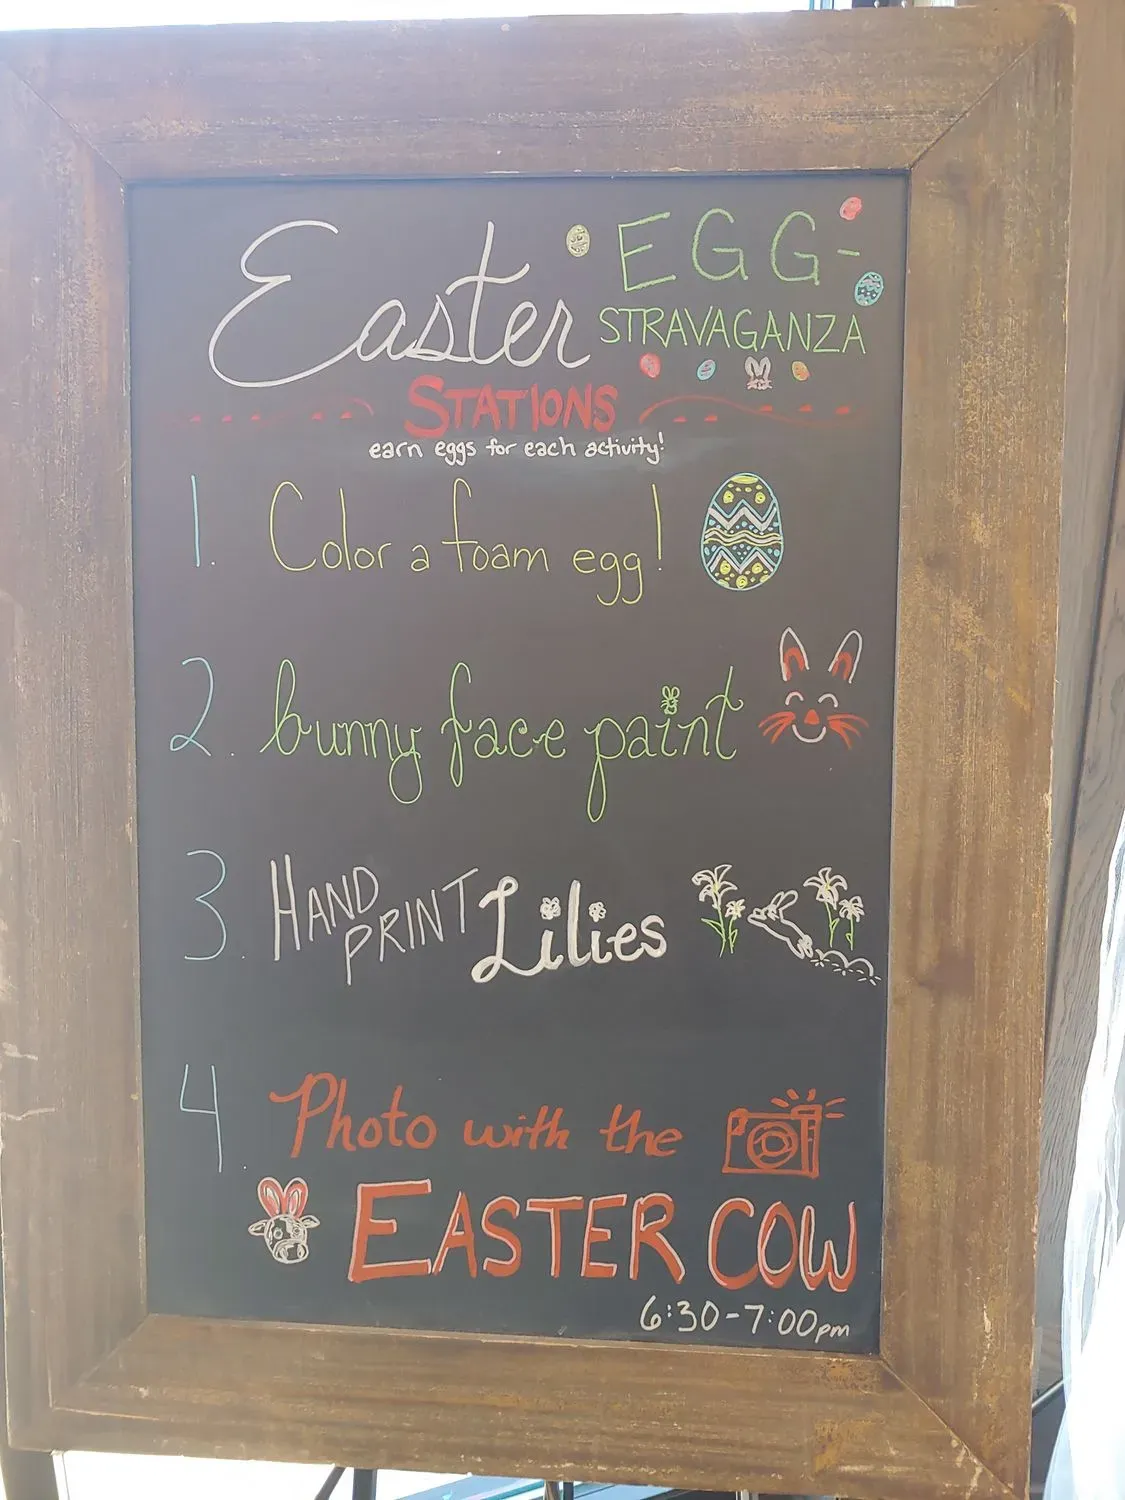 Easter EGG-
STRAVAGANZA
STATIONS
earn eggs for each activity!
1. Color a foam egg!
2. bunny face paint
3. HAND PRINT Lilies
4 Photo with the
EASTER COW
6:30-7:00pm